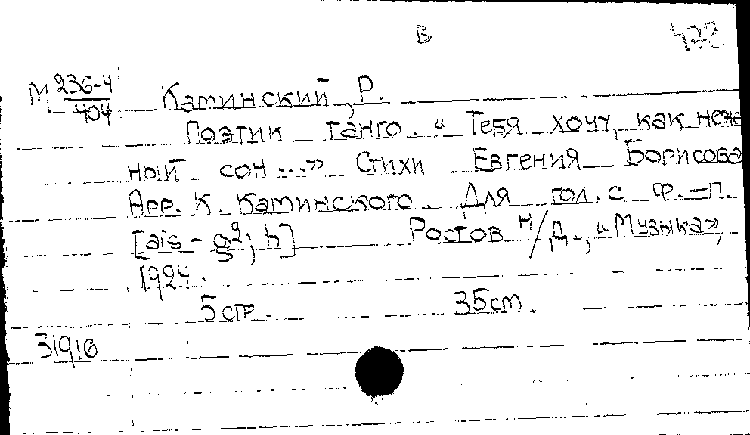 В 422
М 236-4/404 Каминский, Р.
Поэтик танго. "Тебя хочу, как неж
ный сон ..." Стихи Евгения Борисова
Арр. К. Каминского. Для гол. с ф.-п.
[ais - g²; h] Ростов н/Д., "Музыка",
1924.
5 стр. 35 см.
31910